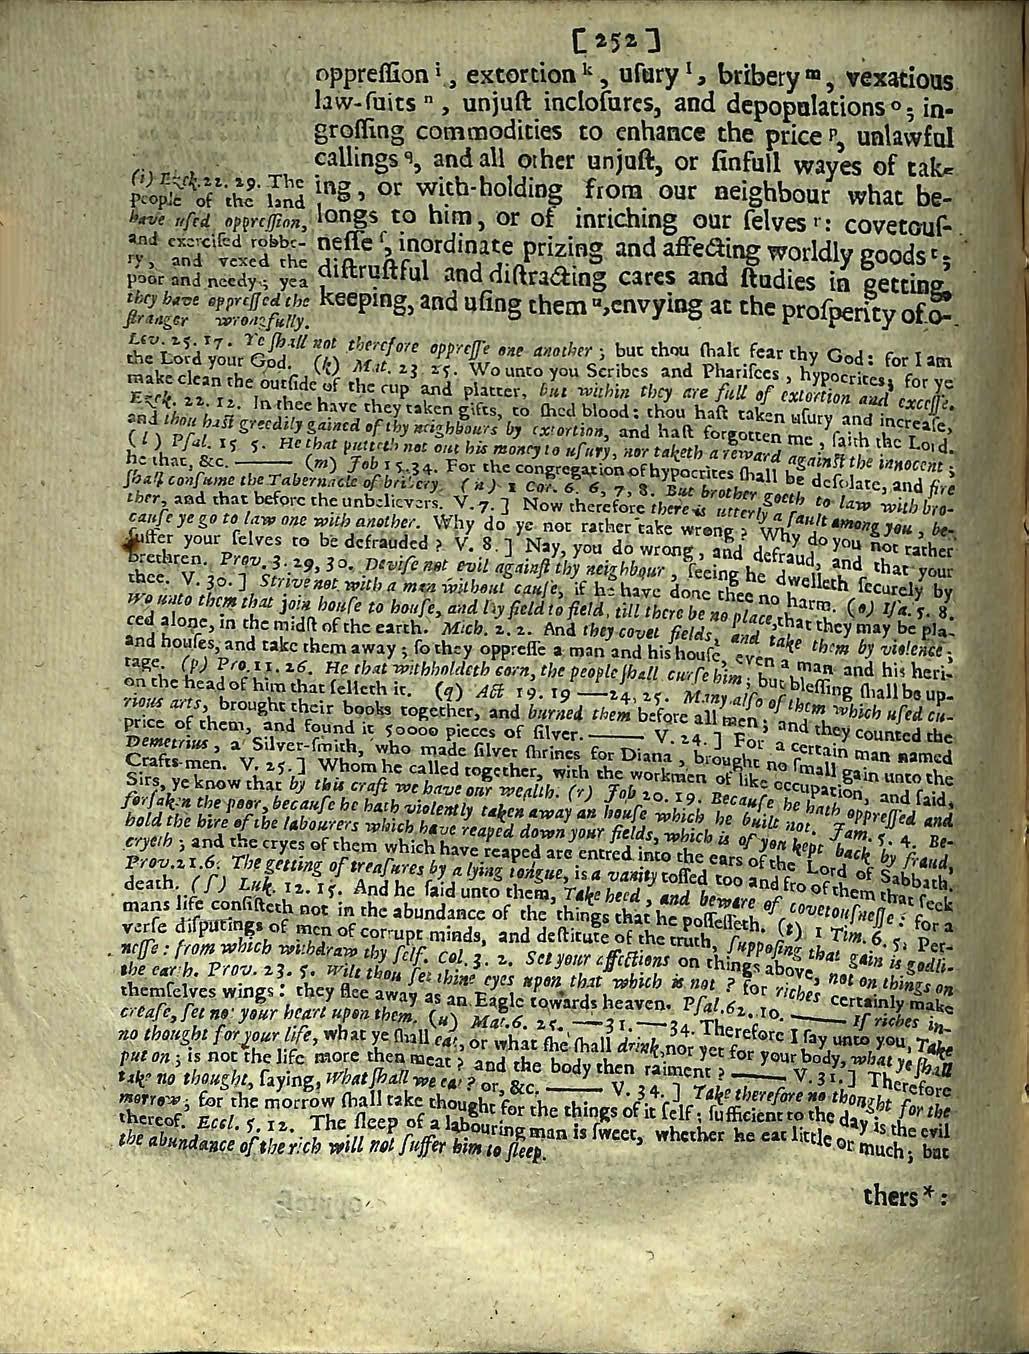 [ 252 ]
oppreſſion i, extortion k, uſury l, bribery m, vexatious
law-ſuits n, unjuſt incloſures, and depopulations o; in-
groſſing commodities to enhance the price p, unlawful
callings q, and all other unjuſt, or ſinfull wayes of tak-
ing, or with-holding from our neighbour what be-
longs to him, or of inriching our ſelves r: covetouſ-
neſſe ſ, inordinate prizing and affecting worldly goods t;
diſtruſtful and diſtracting cares and ſtudies in getting,
keeping, and uſing them u, envying at the proſperity of o-
(i) Ezek. 22. 29. The
people of the land
have uſed oppreſſion,
and exerciſed robbe-
ry, and vexed the
poor and needy; yea
they have oppreſſed the
ſtranger wrongfully.
Lev. 25. 17. Ye ſhall not therefore oppreſſe one another; but thou ſhalt fear thy God: for I am
the Lord your God. (k) Mat. 23 25. Wo unto you Scribes and Phariſees, hypocrites; for ye
make clean the outſide of the cup and platter, but within they are full of extortion and exceſſe.
Ezek. 22. 12. In thee have they taken gifts, to ſhed blood: thou haſt taken uſury and increaſe,
and thou haſt greedily gained of thy neighbours by extortion, and haſt forgotten me, ſaith the Lord.
(l) Pſal. 15 5. He that putteth not out his money to uſury, nor taketh a reward againſt the innocent;
he that, &c. —— (m) Job 15.34. For the congregation of hypocrites ſhall be deſolate, and fire
ſhall conſume the Tabernacle of bribery. (n) 1 Cor. 6. 6, 7, 8. But brother goeth to law with bro-
ther, and that before the unbelievers. V. 7. ] Now therefore there is utterly a fault among you, be-
cauſe ye go to law one with another. Why do ye not rather take wrong? Why do you not rather
ſuffer your ſelves to be defrauded? V. 8. ] Nay, you do wrong, and defraud, and that your
brethren. Prov. 3. 29, 30. Deviſe not evil againſt thy neighbour, ſeeing he dwelleth ſecurely by
thee. V. 30. ] Strive not with a man without cauſe, if he have done thee no harm. (o) Iſa. 5. 8.
Wo unto them that join houſe to houſe, and lay field to field, till there be no place, that they may be pla-
ced alone, in the midſt of the earth. Mich. 2. 2. And they covet fields, and take them by violence;
and houſes, and take them away; ſo they oppreſſe a man and his houſe, even a man and his heri-
tage. (p) Pro. 11. 26. He that withholdeth corn, the people ſhall curſe him; but bleſſing ſhall be up-
on the head of him that ſelleth it. (q) Act 19. 19 —24, 25. Many alſo of them which uſed cu-
rious arts, brought their books together, and burned them before all men; and they counted the
price of them, and found it 50000 pieces of ſilver. —— V. 24. ] For a certain man named
Demetrius, a Silver-ſmith, who made ſilver ſhrines for Diana, brought no ſmall gain unto the
Crafts-men. V. 25. ] Whom he called together, with the workmen of like occupation, and ſaid,
Sirs, ye know that by this craft we have our wealth. (r) Job 20. 19. Becauſe he hath oppreſſed and
forſaken the poor, becauſe he hath violently taken away an houſe which he built not. Jam. 5. 4. Be-
hold the hire of the labourers which have reaped down your fields, which is of you kept back by fraud,
cryeth; and the cryes of them which have reaped are entred into the ears of the Lord of Sabbath.
Prov. 21. 6. The getting of treaſures by a lying tongue, is a vanity toſſed too and fro of them that ſeek
death. (ſ) Luk. 12. 15. And he ſaid unto them, Take heed, and beware of covetouſneſſe: for a
mans life conſiſteth not in the abundance of the things that he poſſeſſeth. (t) 1 Tim. 6. 5. Per-
verſe diſputings of men of corrupt minds, and deſtitute of the truth, ſuppoſing that gain is godli-
neſſe: from which withdraw thy ſelf. Col. 3. 2. Set your affections on things above, not on things on
the earth. Prov. 23. 5. Wilt thou ſet thine eyes upon that which is not? for riches certainly make
themſelves wings: they flee away as an Eagle towards heaven. Pſal. 62. 10. —— If riches in-
creaſe, ſet not your heart upon them. (u) Mat. 6. 25. —31.—34. Therefore I ſay unto you, Take
no thought for your life, what ye ſhall eat, or what ſhe ſhall drink, nor yet for your body, what ye ſhall
put on; is not the life more then meat? and the body then raiment? —— V. 31. ] Therefore
take no thought, ſaying, What ſhall we eat? or, &c. —— V. 34. ] Take therefore no thought for the
morrow; for the morrow ſhall take thought for the things of it ſelf; ſufficient to the day is the evil
thereof. Eccl. 5. 12. The ſleep of a labouring man is ſweet, whether he eat little or much; but
the abundance of the rich will not ſuffer him to ſleep.
thers *: